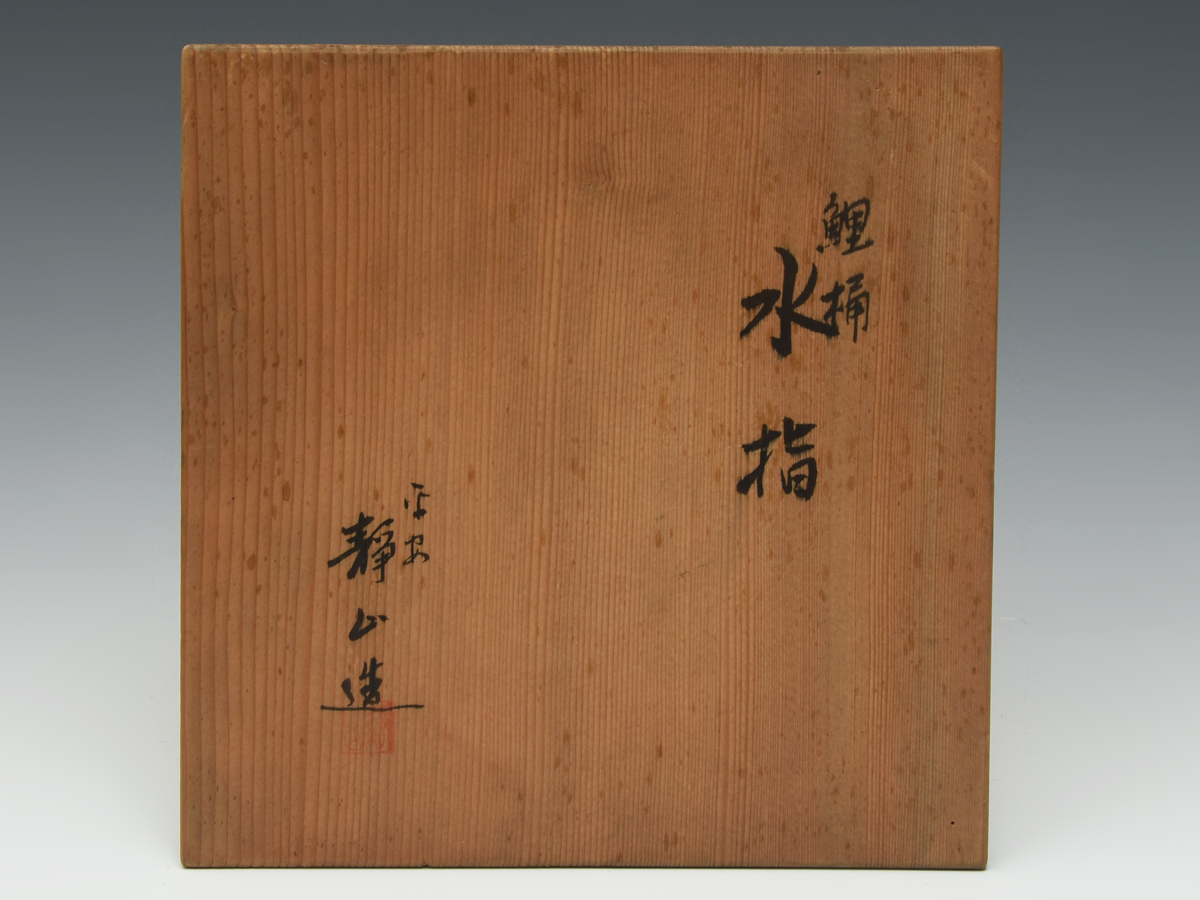 鯉桶
水指
平安
靜山造